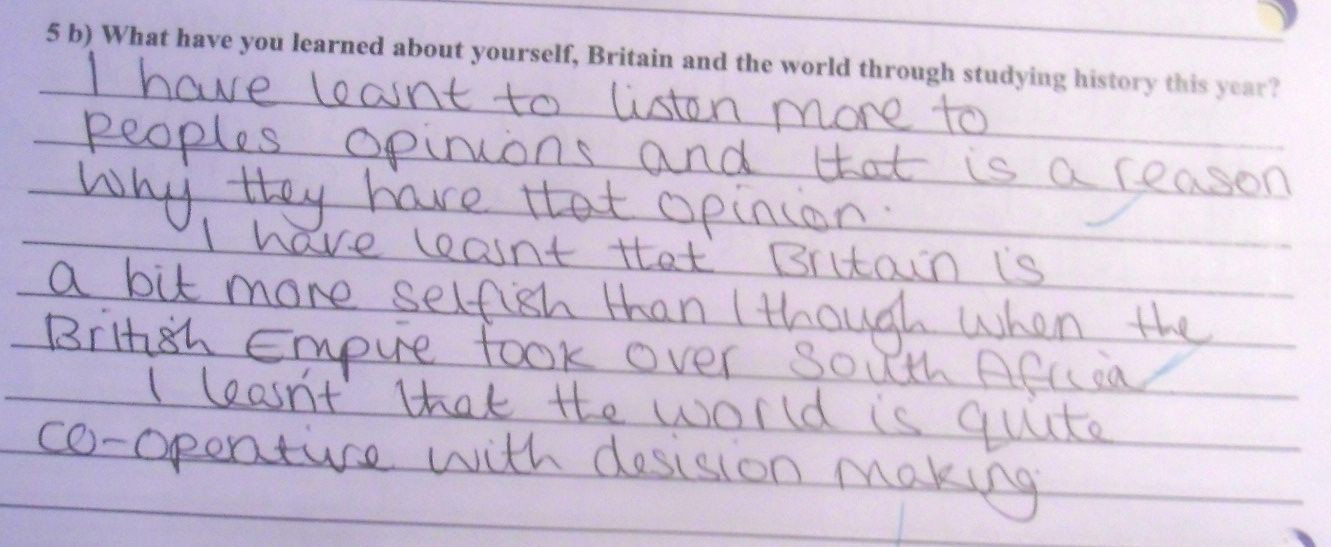 5 b) What have you learned about yourself, Britain and the world through studying history this year?
I have learnt to listen more to
peoples opinions and that is a reason
why they have that opinion.
I have learnt that Britain is
a bit more selfish than I though when the
British Empire took over South Africa
I learnt that the world is quite
co-operative with desision making